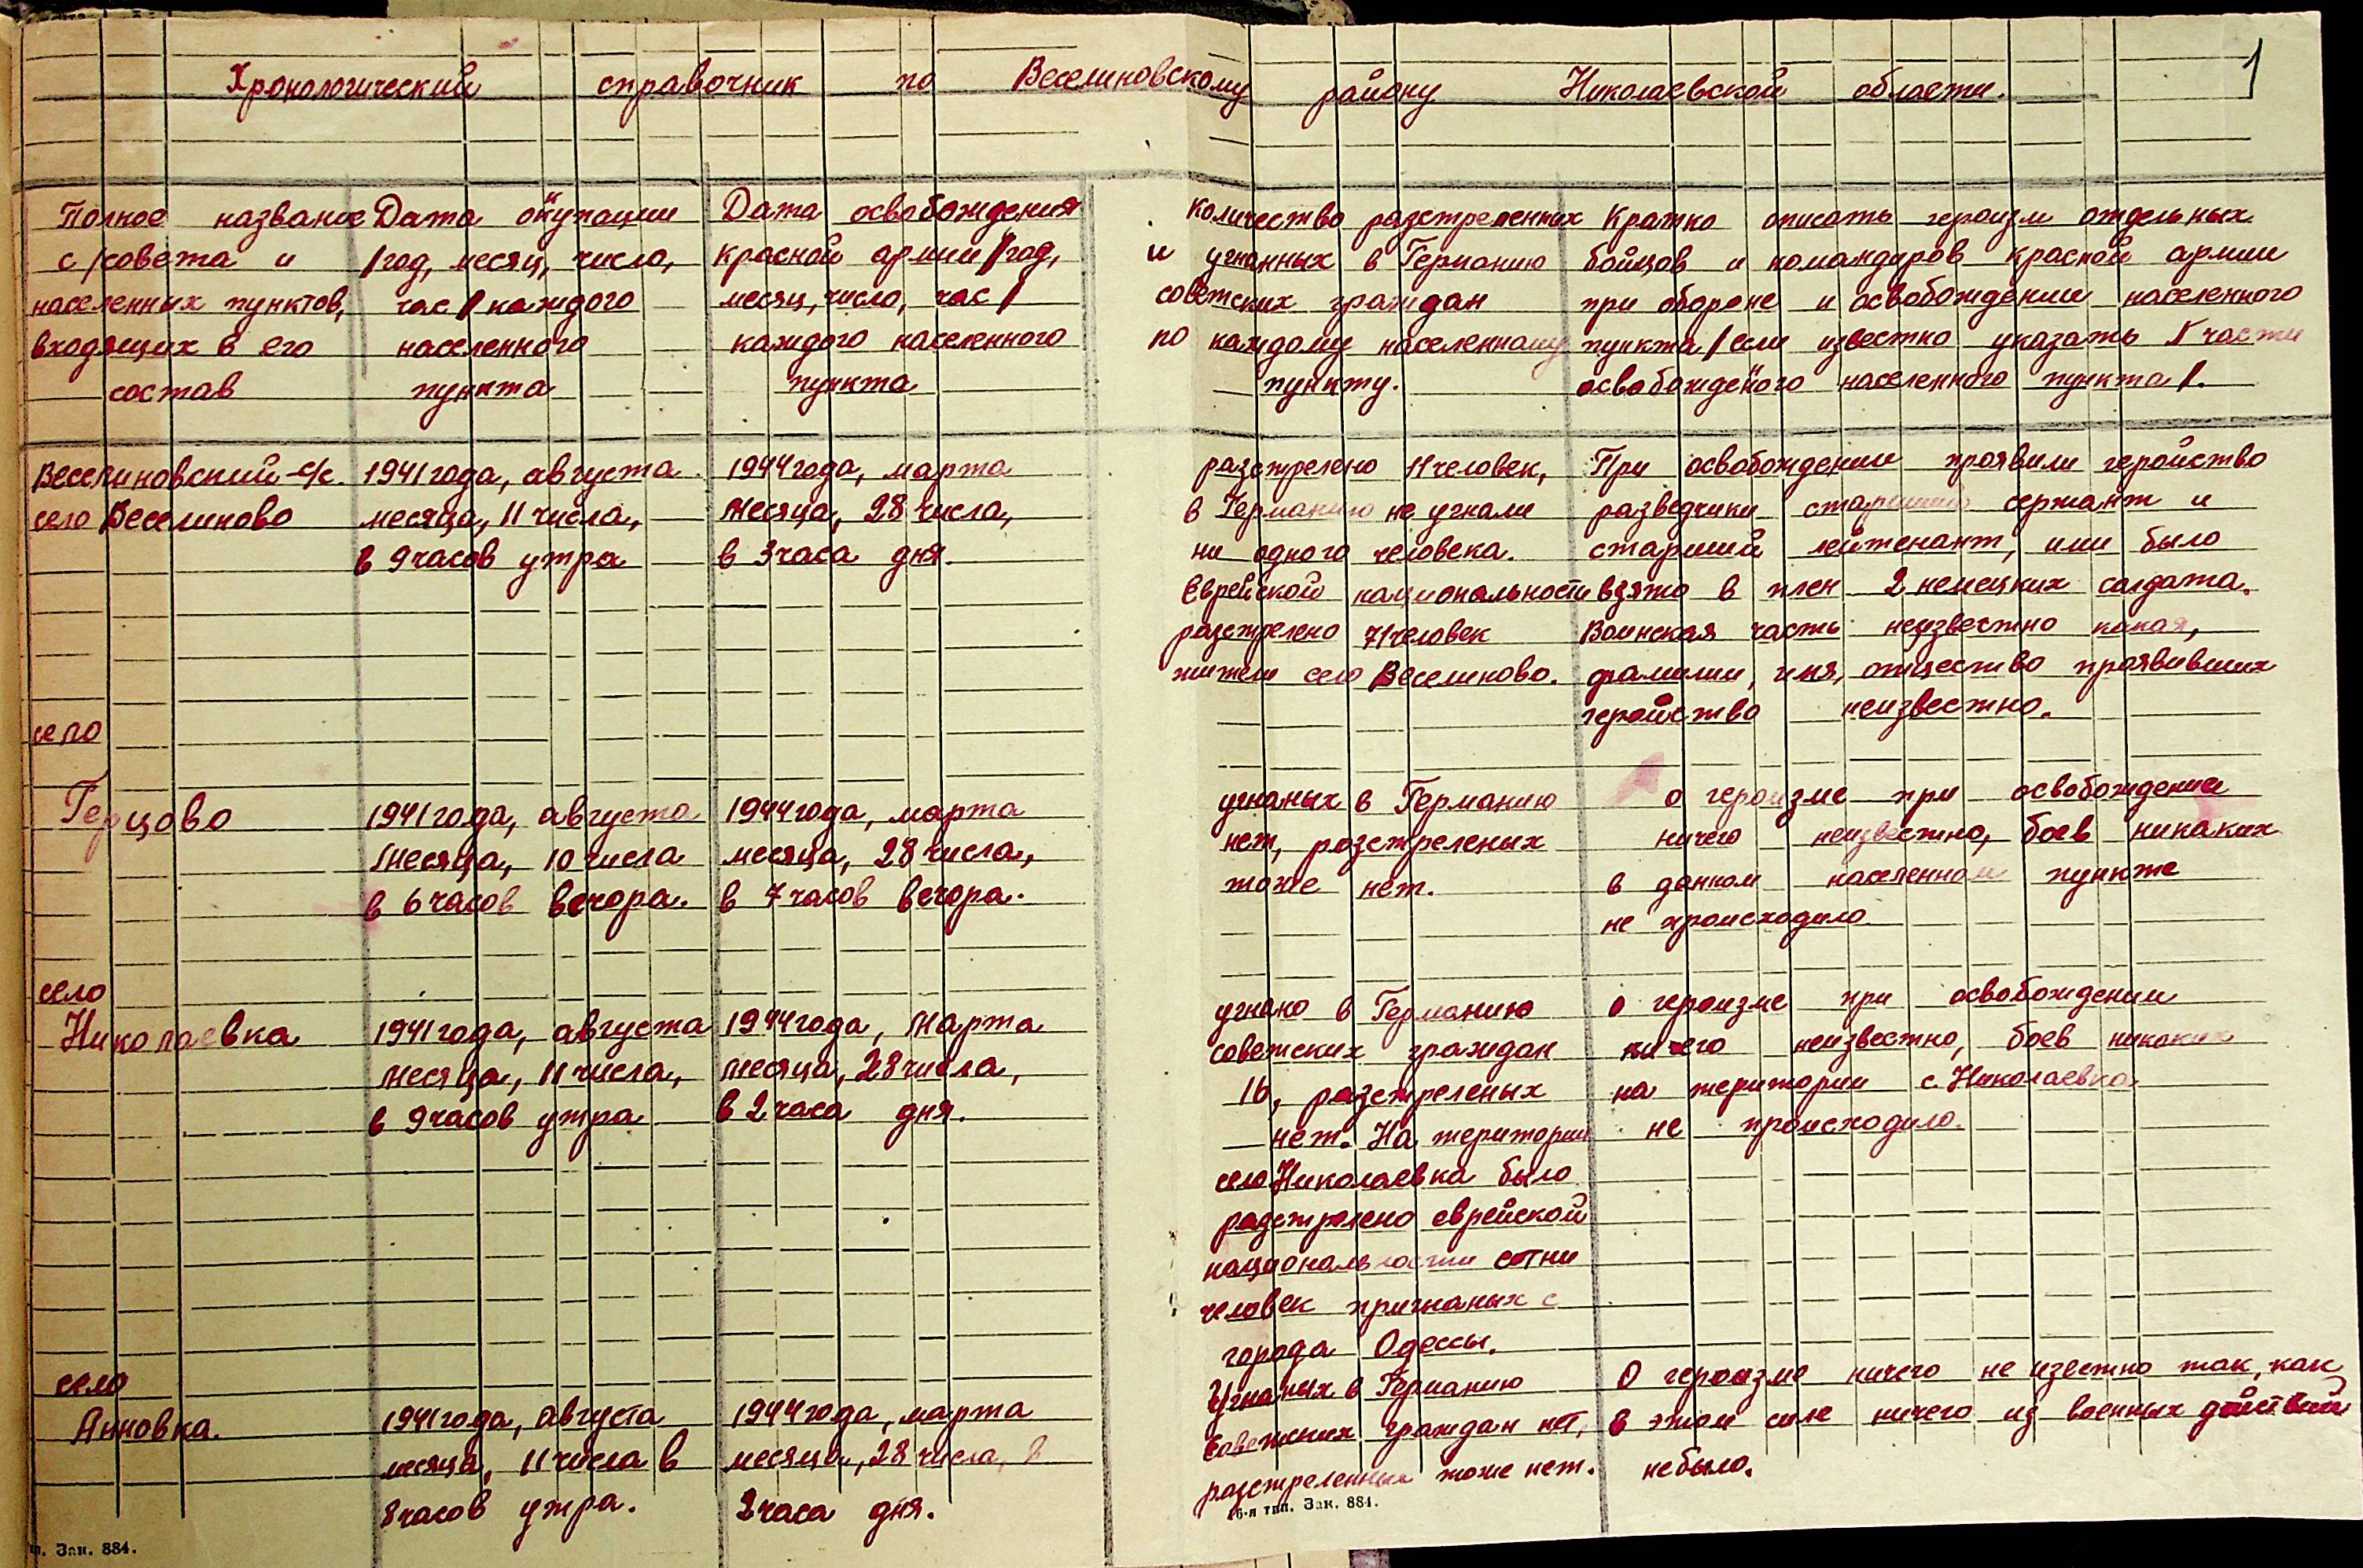 1
Хронологический справочник по Веселиновскому району Николаевской области.
Полное название
с/совета и
населенных пунктов,
входящих в его
состав
Дата окупации
/год, месяц, число,
час/ каждого
населенного
пункта
Дата освобождения
красной армии /год,
месяц, число, час/
каждого населенного
пункта
Количество разстреленных
и угнанных в Германию
советских граждан
по каждому населенному
пункту.
Кратко описать героизм отдельных
бойцов и командиров красной армии
при обороне и освобождении населенного
пункта /если известно указать части
освобожденого населенного пункта/.
Веселиновский с/с.
село Веселиново
1941 года, августа
месяца, 11 числа,
в 9 часов утра
1944 года, марта
месяца, 28 числа,
в 3 часа дня.
разстрелено 11 человек,
в Германию не угнали
ни одного человека.
Еврейской национальности
разстрелено 71 человек
жители село Веселиново.
При освобождении проявили геройство
разведчики старший сержант и
старший лейтенант, ими было
взято в плен 2 немецких солдата.
Воинская часть неизвестно какая,
фамилии, имя, отчество проявивших
геройство неизвестно.
село
Герцово
1941 года, августа
месяца, 10 числа
в 6 часов вечора.
1944 года, марта
месяца, 28 числа,
в 7 часов вечора.
угнаных в Германию
нет, розстреленых
тоже нет.
о героизме при освобождении
ничего неизвестно, боев никаких
в данном населенном пункте
не происходило
село
Николаевка
1941 года, августа
месяца, 11 числа,
в 9 часов утра
1944 года, марта
месяца, 28 числа,
в 2 часа дня.
угнано в Германию
советских граждан
16, разстреленых
нет. На територии
село Николаевка было
разстрелено еврейской
национальности сотни
человек пригнаных с
города Одессы.
о героизме при освобождении
ничего неизвестно, боев никаких
на територии с. Николаевка
не происходило.
село
Анновка.
1941 года, августа
месяца, 11 числа в
8 часов утра.
1944 года, марта
месяца, 28 числа, в
2 часа дня.
Угнаных в Германию
советских граждан нет,
разстреленных тоже нет.
О героизме ничего не извстно так, как
в этом селе ничего из военных действий
небыло.
Зак. 884.
16-я тип. Зак. 884.